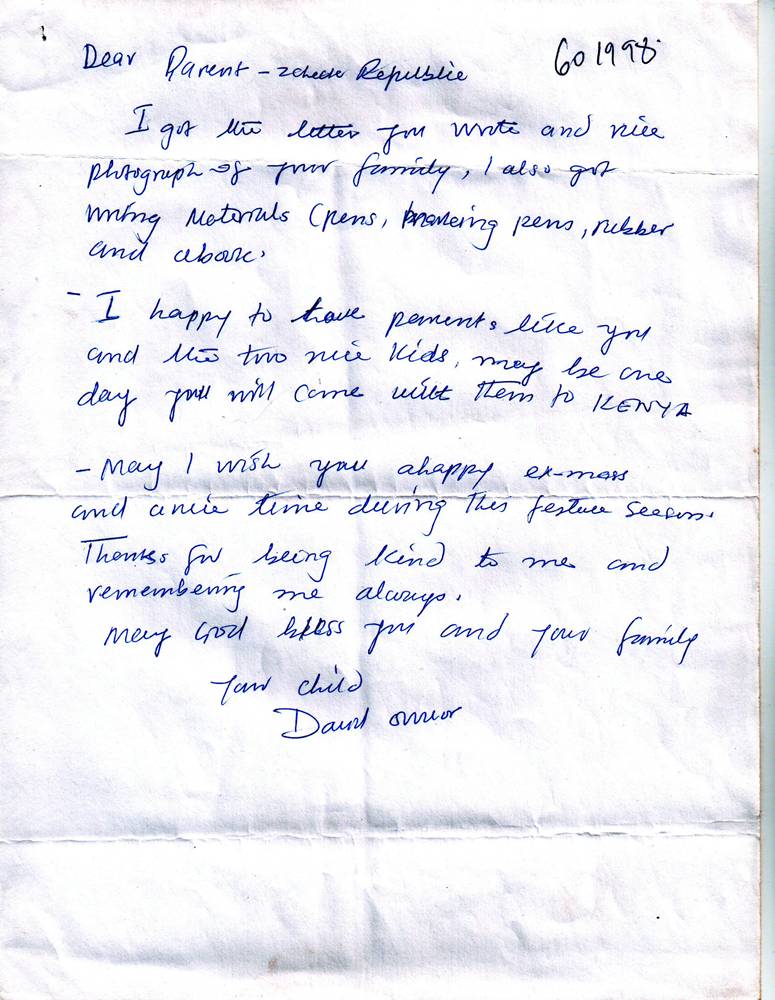 Dear Parent - zcheck Republic 601998
I got the letter you wrote and nice
photograph of your family, I also got
writing materials (pens, pens, rubber
and above.
- I happy to have parents like you
and the two nice kids, may be one
day you will come with them to KENYA
- May I wish you ahappy ex-mass
and anice time during this festive season.
Thanks for being kind to me and
remembering me always.
May God bless you and your family
Your child
David